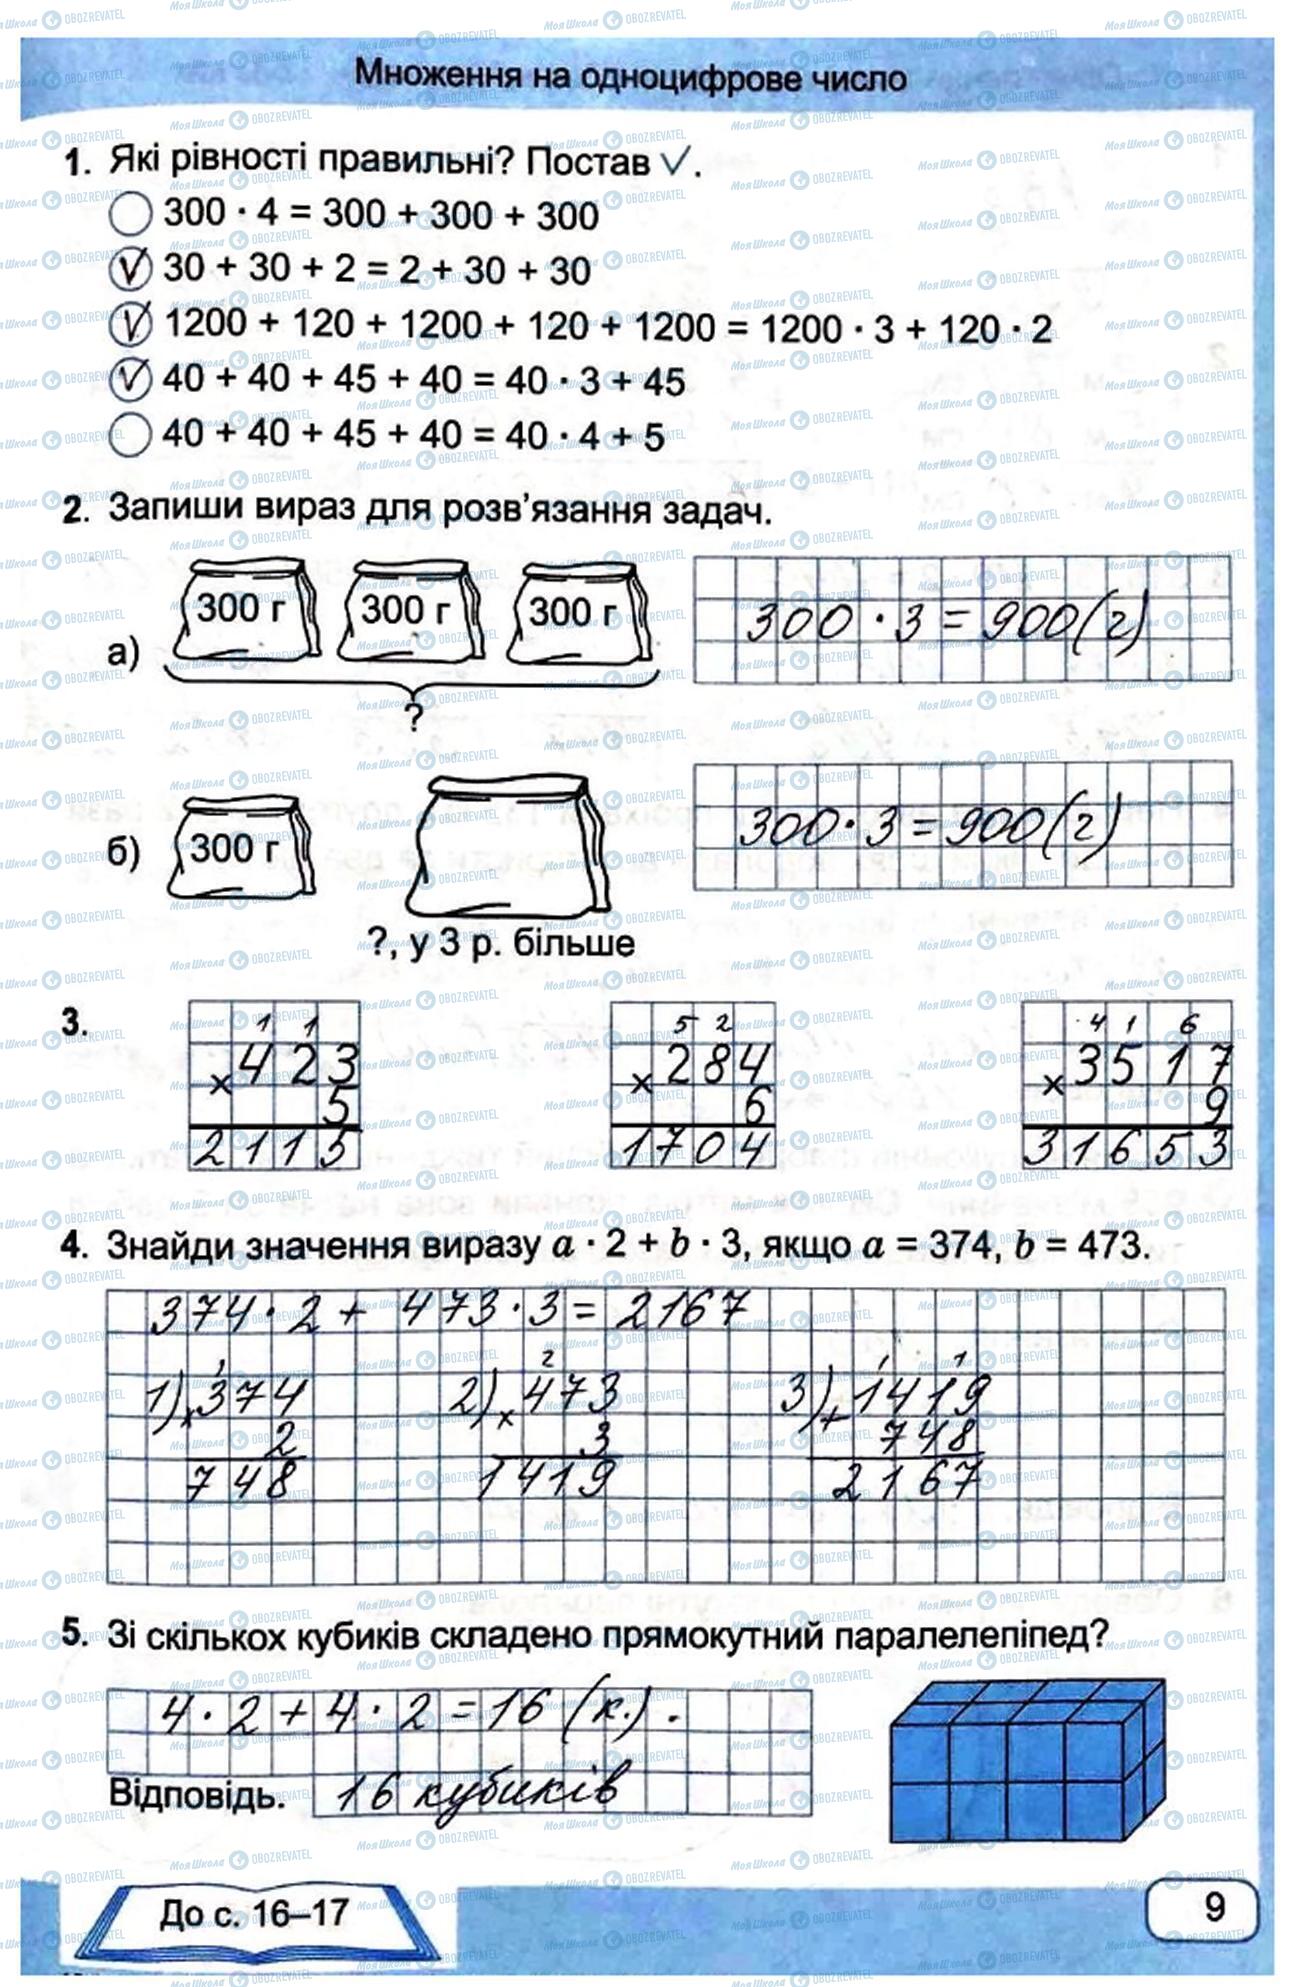 Множення на одноцифрове число
1. Які рівності правильні? Постав √.
300 · 4 = 300 + 300 + 300
√ 30 + 30 + 2 = 2 + 30 + 30
√ 1200 + 120 + 1200 + 120 + 1200 = 1200 · 3 + 120 · 2
√ 40 + 40 + 45 + 40 = 40 · 3 + 45
40 + 40 + 45 + 40 = 40 · 4 + 5
2. Запиши вираз для розв'язання задач.
а) 300 г 300 г 300 г
?
300 · 3 = 900 (г)
б) 300 г
?, у 3 р. більше
300 · 3 = 900 (г)
3.
1 1
× 423
5
2115
5 2
× 284
6
1704
4 1 6
× 3517
9
31653
4. Знайди значення виразу a · 2 + b · 3, якщо a = 374, b = 473.
374 · 2 + 473 · 3 = 2167
1
1) × 374
2
748
2
2) × 473
3
1419
1 1
3) + 1419
748
2167
5. Зі скількох кубиків складено прямокутний паралелепіпед?
4 · 2 + 4 · 2 = 16 (к.).
Відповідь. 16 кубиків
До с. 16–17
9
МояШкола OBOZREVATEL